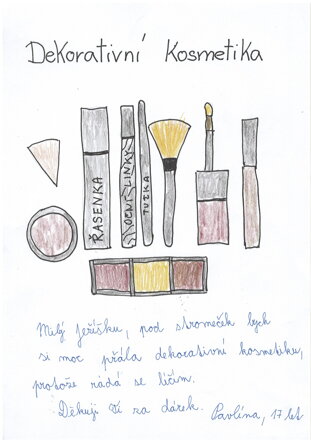 Dekorativní kosmetika
ŘASENKA
OČNÍ LINKY
TUŽKA
Milý Ježíšku, pod stromeček bych
si moc přála dekorativní kosmetiku,
protože ráda se líčím.
Děkuji Ti za dárek. Pavlína, 17 let